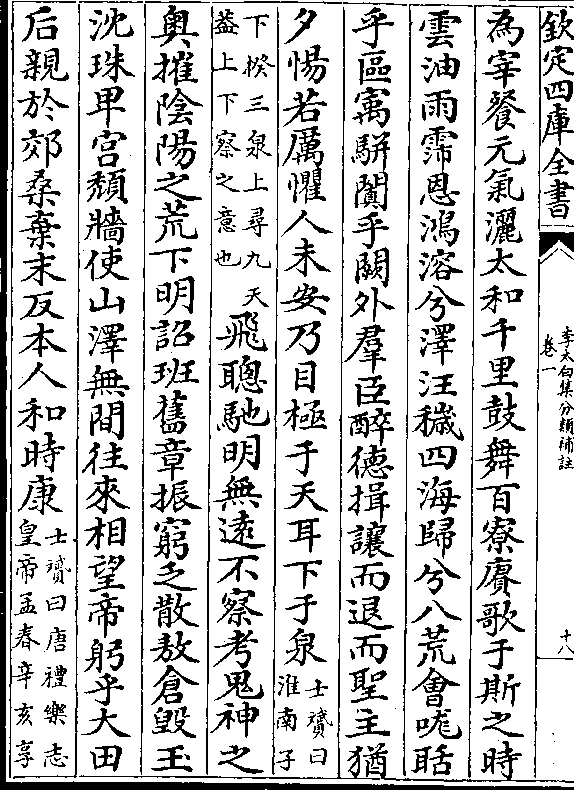 欽定四庫全書
李太白集分類補註
卷一
十八
為宰餐元氣灑太和千里鼓舞百寮賡歌于斯之時
雲油雨霈恩鴻溶兮澤汪濊四海歸兮八荒會哤聒
乎區寓駢闐乎闕外羣臣醉德揖讓而退而聖主猶
夕惕若厲懼人未安乃目極于天耳下于泉士贇曰淮南子
下揆三泉上尋九天
葢上下察之意也
飛聰馳明無遠不察考鬼神之
奥摧陰陽之荒下明詔班舊章振窮乏散敖倉毀玉
沈珠卑宫頽牆使山澤無間往來相望帝躬乎大田
后親於郊桑棄末反本人和時康士贇曰唐禮樂志皇帝孟春辛亥享